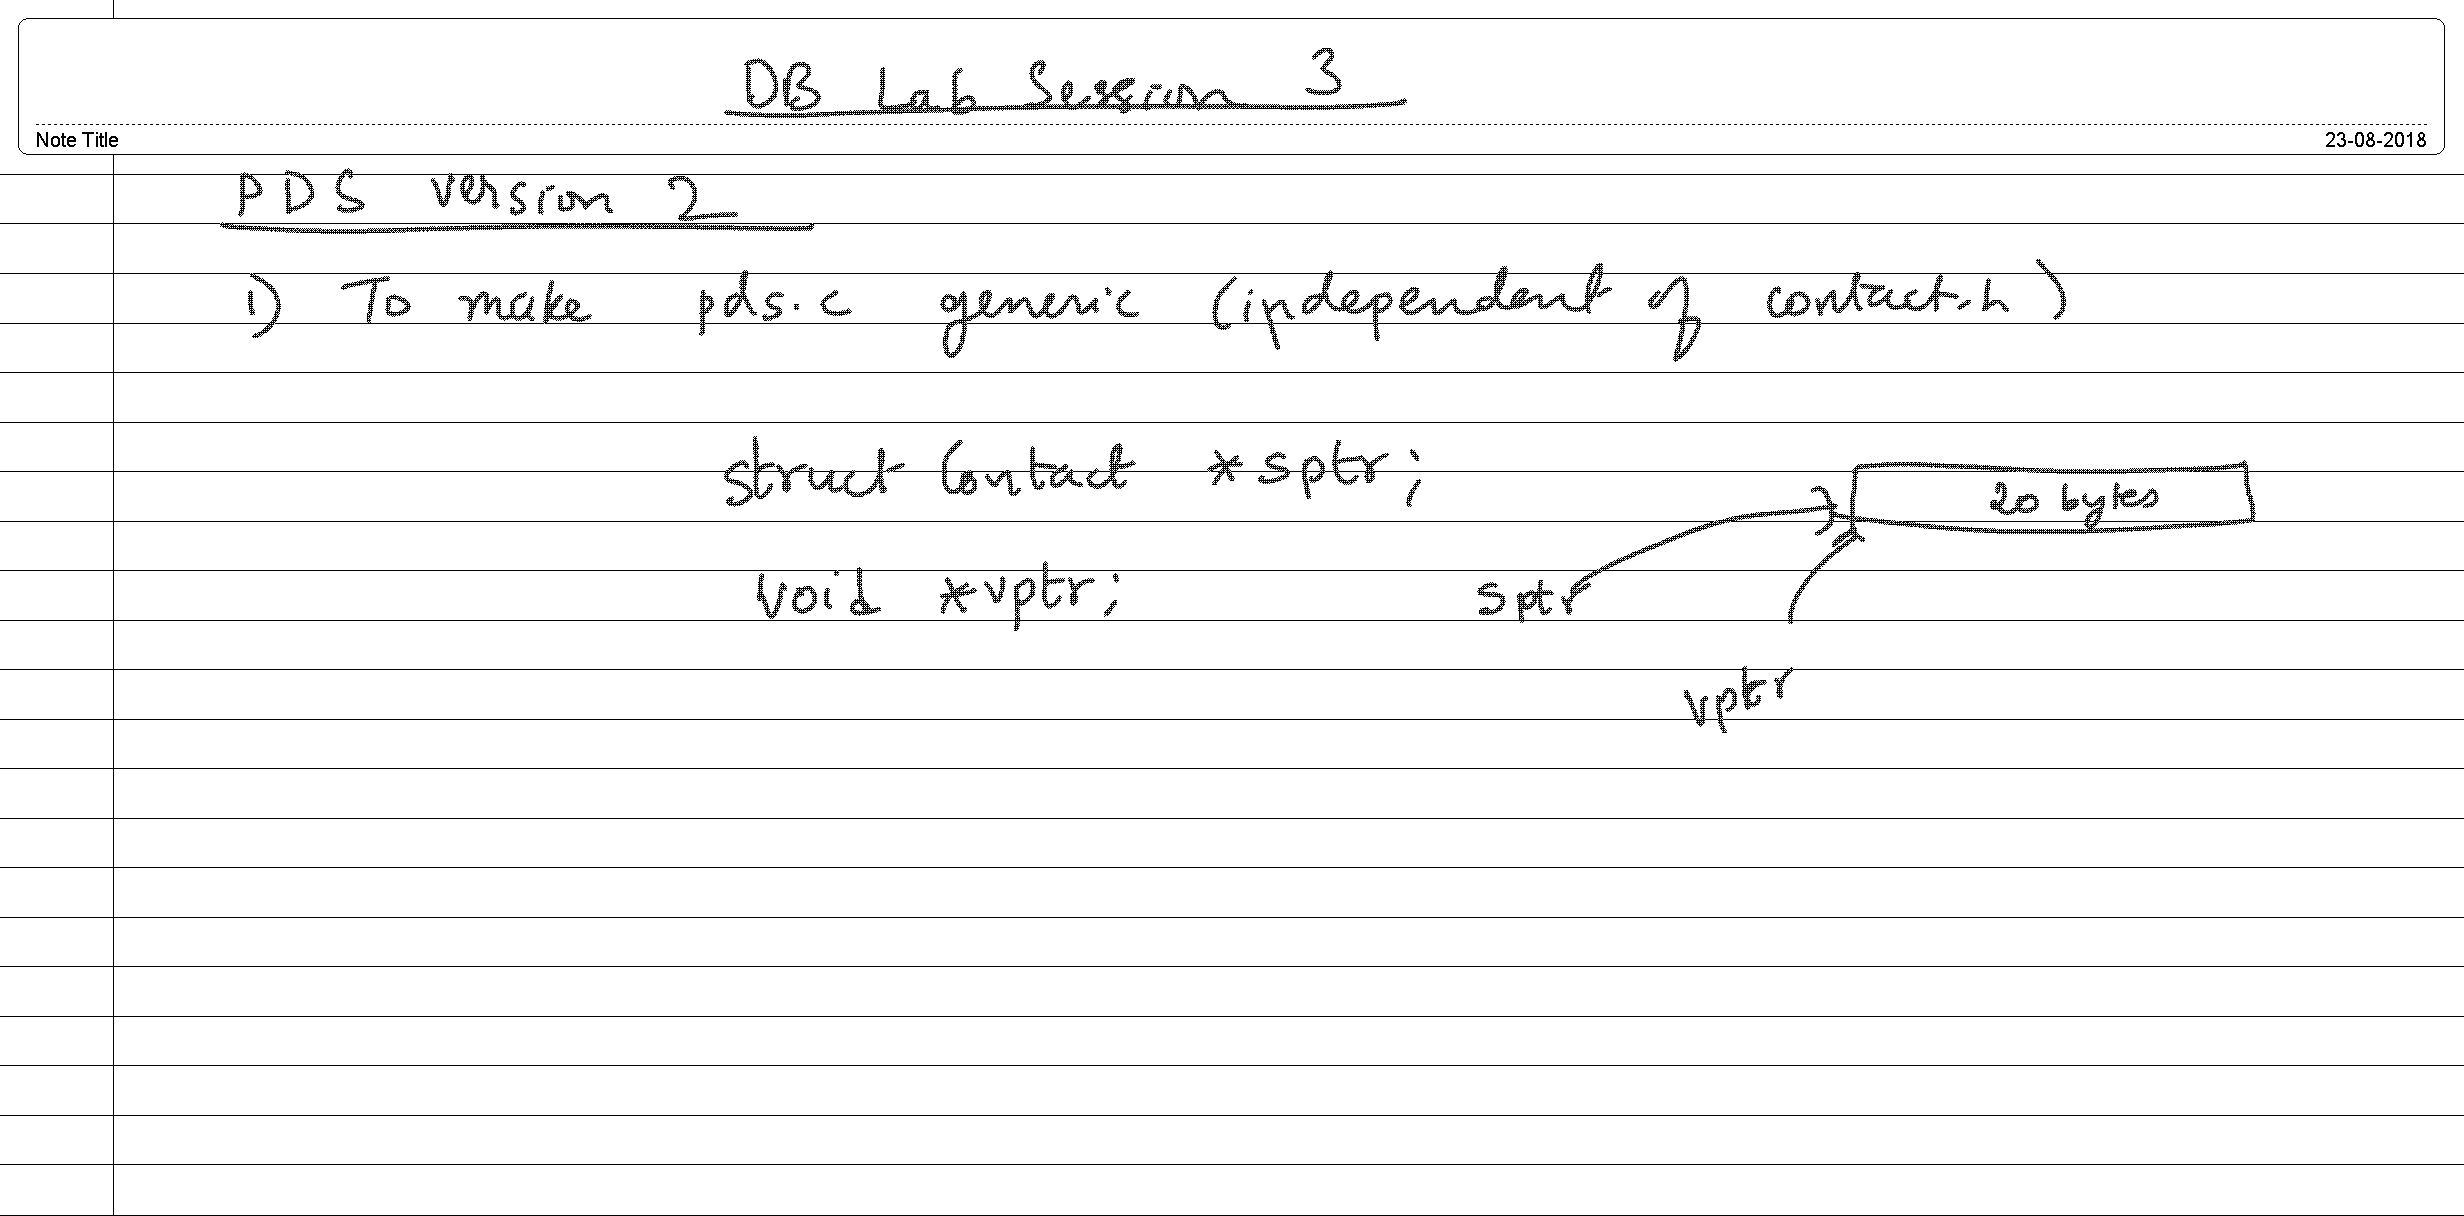 DB Lab Session 3
Note Title 23-08-2018
PDS version 2
1) To make pds.c generic (independent of contact.h)
struct Contact *sptr;
20 bytes
void *vptr;
sptr
vptr